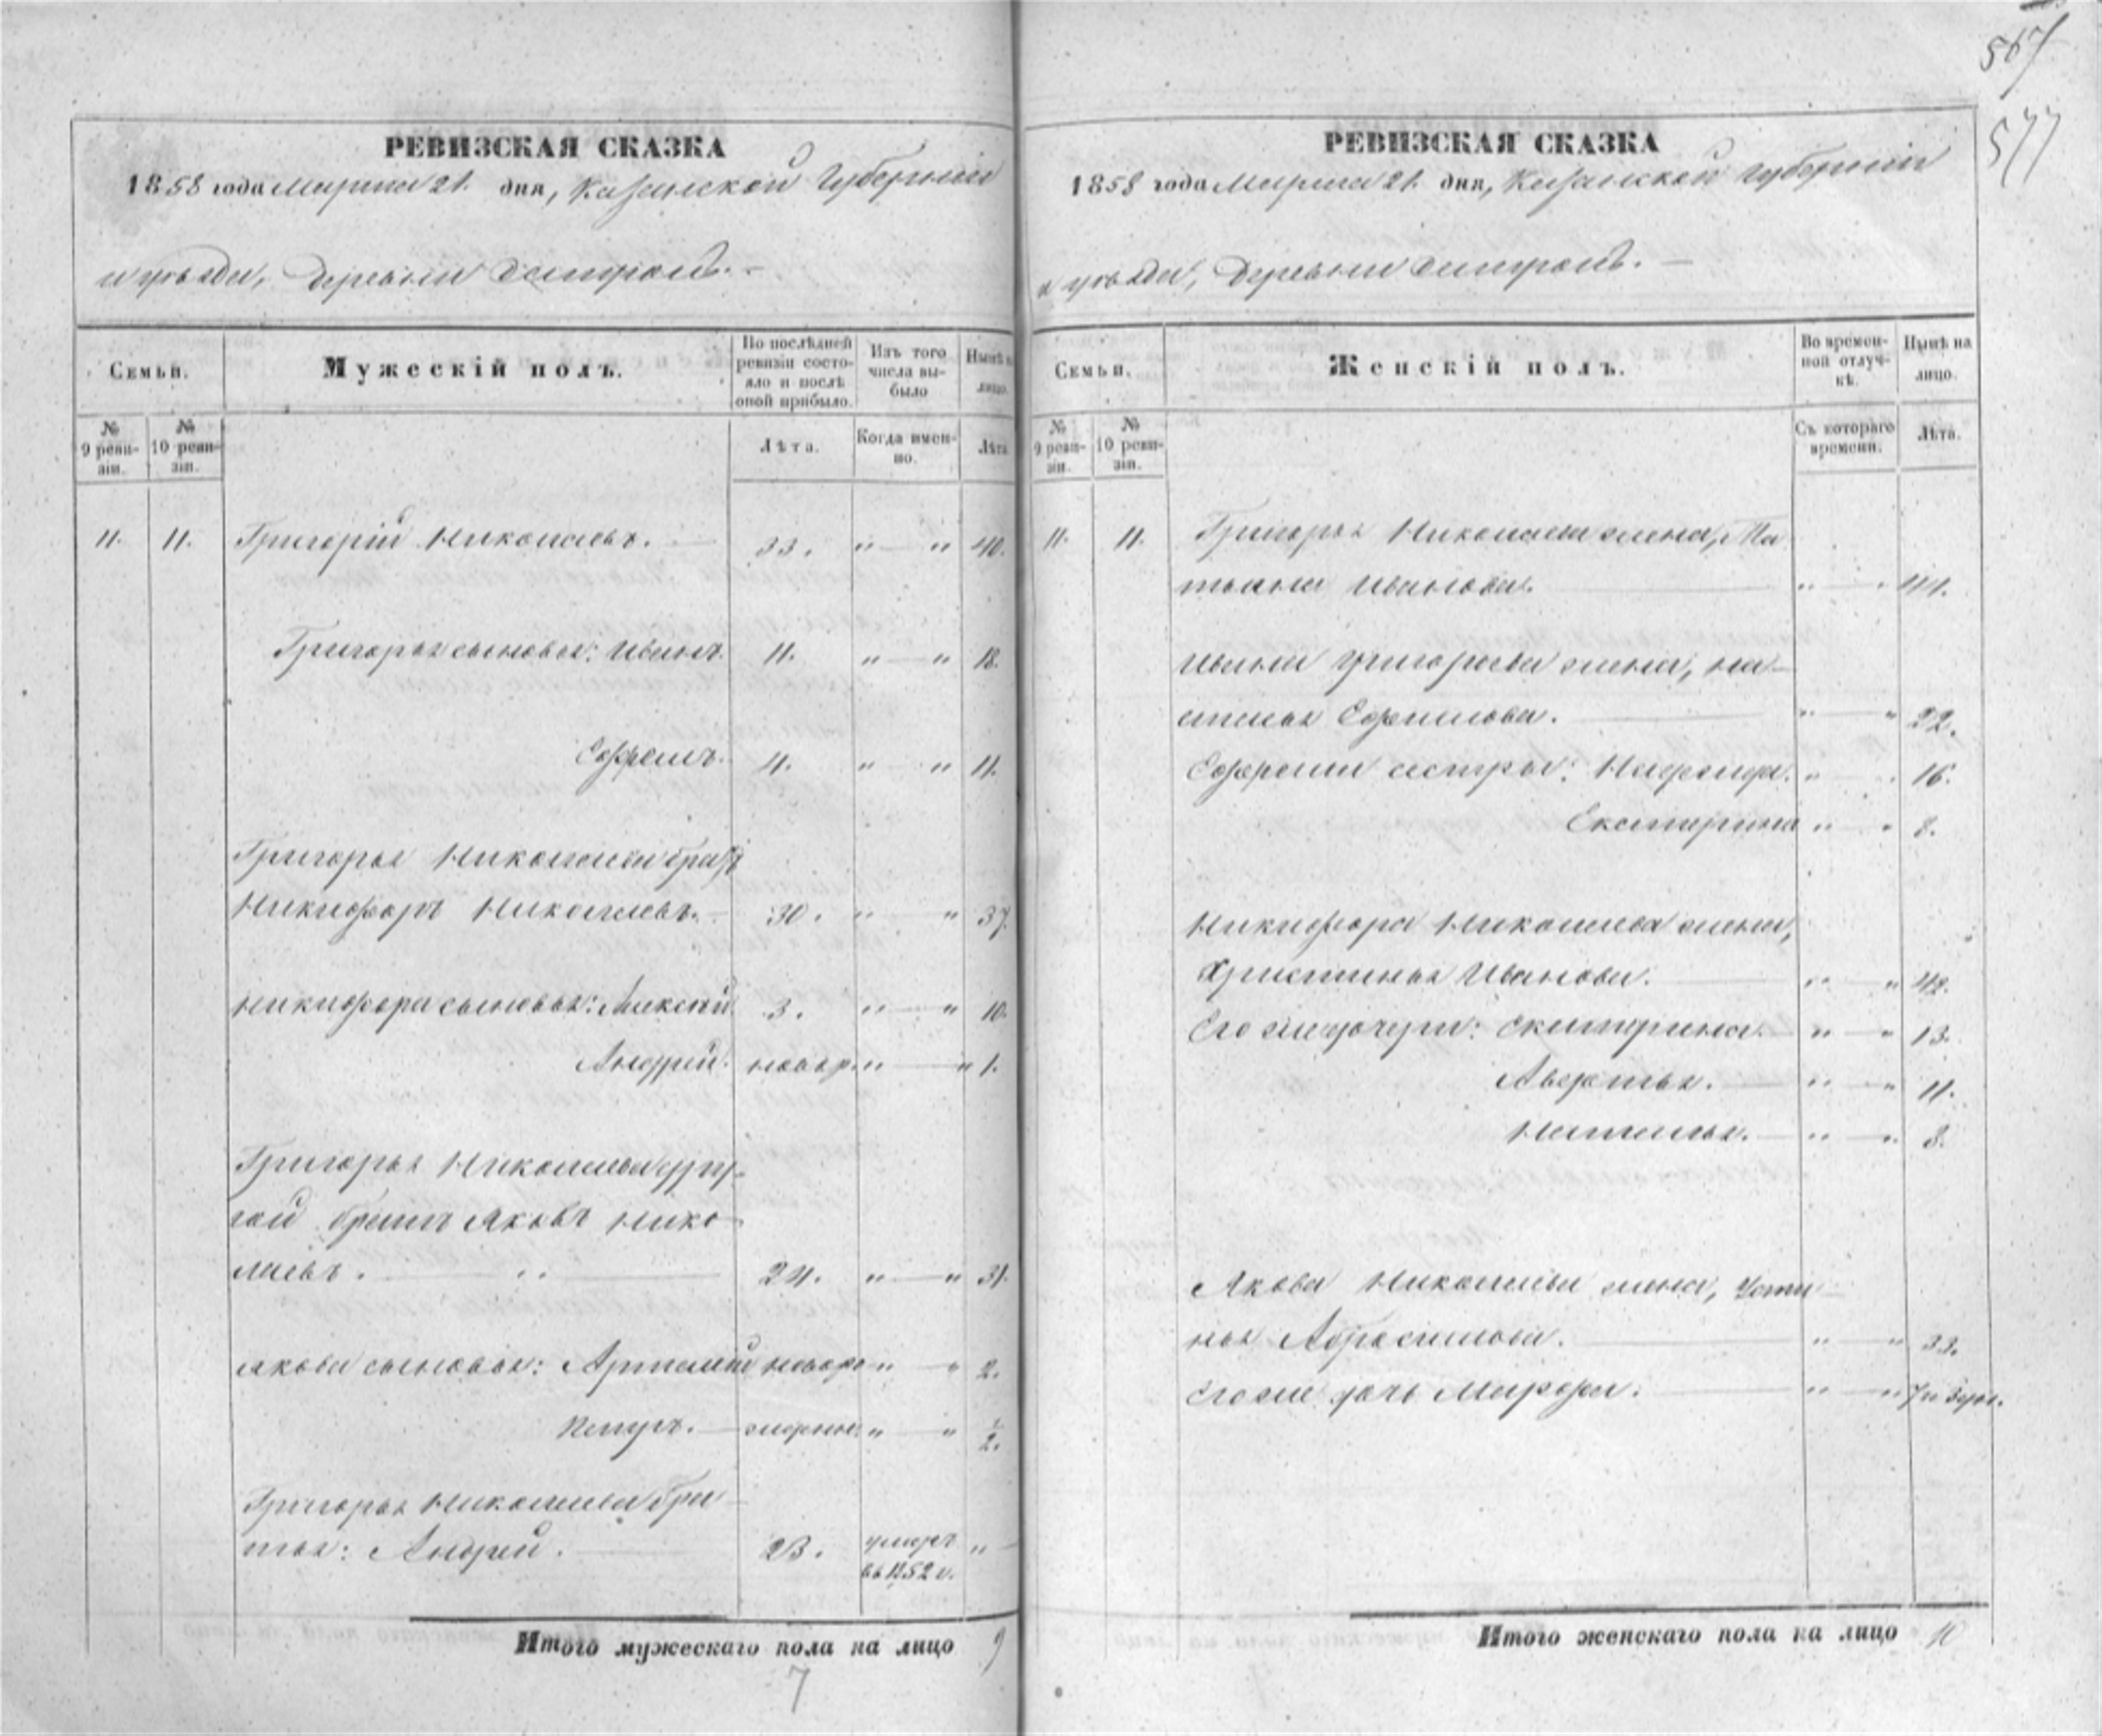 567
577
РЕВИЗСКАЯ СКАЗКА
1858 года Марта 21. дня, Казанской Губерніи
и уѣзда, Деревни
Семьи.
Мужескій полъ.
По послѣдней ревизіи состояло и послѣ оной прибыло.
Изъ того числа выбыло
Нынѣ на лицо.
№ 9 ревизіи.
№ 10 ревизіи.
Лѣта.
Когда именно.
Лѣта
11. 11. Григорій Николаевъ. 33. " — " 40.
Григорья сыновья: Иванъ. 11. " — " 18.
Ефремъ. 4. " — " 11.
Григорья Николаева братъ
Никифоръ Николаевъ. 30. " — " 37.
Никифора сыновья: Алексей 3. " — " 10.
Андрей. новор. " — " 1.
Григорья Николаева дру-
гой братъ Яковъ Нико-
лаевъ. 24. " — " 31.
Якова сыновья: Артемий новоро " — " 2.
Петръ. — " — " 1/2.
Григорья Николаева бра-
тья: Андрей. 23. умеръ въ 1852 г. "
Итого мужескаго пола на лицо 9
7
РЕВИЗСКАЯ СКАЗКА
1858 года Марта 21. дня, Казанской Губерніи
и уѣзда, Деревни
Семьи.
Женскій полъ.
Во временной отлучкѣ.
Нынѣ на лицо.
№ 9 ревизіи.
№ 10 ревизіи.
Съ котораго времени.
Лѣта.
11. 11. Григорья Николаева жена, Та-
тьяна Иванова. " — " 44.
Ивана Григорьева жена, На-
талья Ефимова. " — " 22.
Ефрема сестры: " — " 16.
Екатерина " — " 8.
Никифора Николаева жена,
Христинья Иванова. " — " 42.
Его же дочери: Екатерина. " — " 13.
Авдотья. " — " 11.
Наталья. " — " 8.
Якова Николаева жена, Усти-
нья Абросимова. " — " 33.
Его же дочь Марфа. " — "
Итого женскаго пола на лицо 10